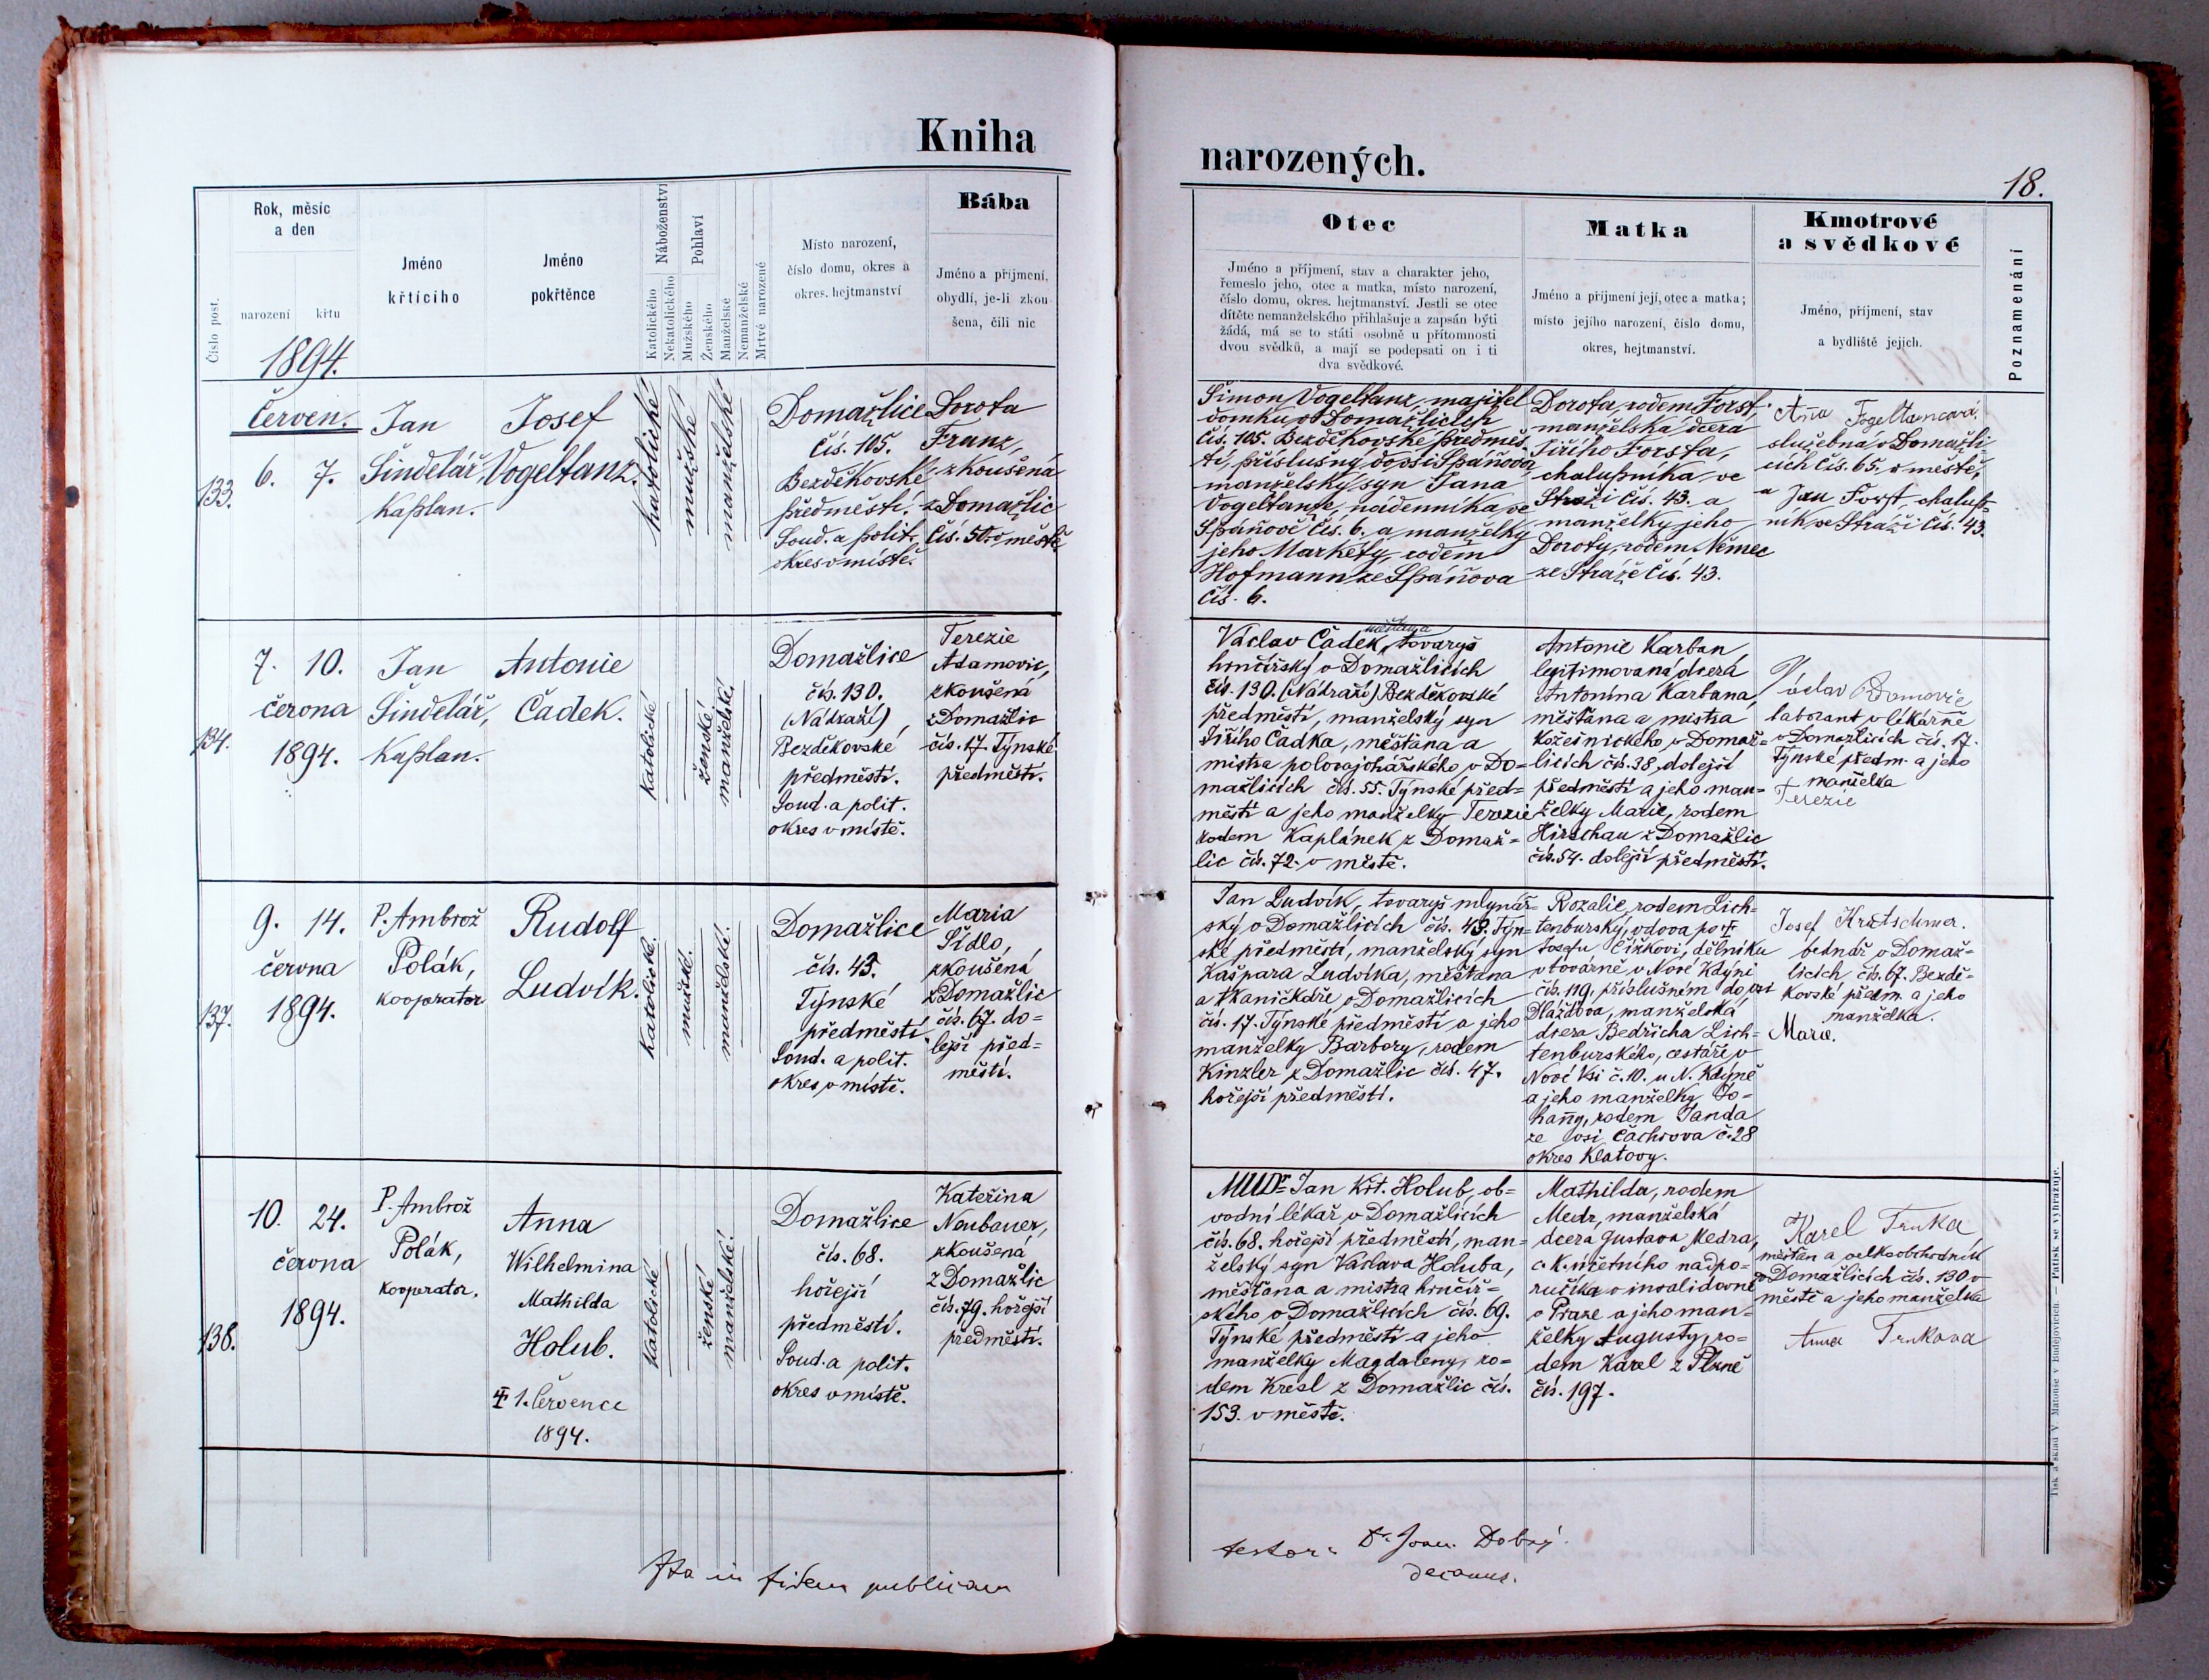 Kniha
narozených.
18.
Číslo post.
Rok, měsíc
a den
narození
křtu
1894.
Jméno
křtícího
Jméno
pokřtěnce
Náboženství
Katolického
Nekatolického
Pohlaví
Mužského
Ženského
Manželské
Nemanželské
Mrtvé narozené
Místo narození,
číslo domu, okres a
okres. hejtmanství
Bába
Jméno a příjmení,
obydlí, je-li zkou-
šena, čili nic
Otec
Jméno a příjmení, stav a charakter jeho,
řemeslo jeho, otec a matka, místo narození,
číslo domu, okres. hejtmanství. Jestli se otec
dítěte nemanželského přihlašuje a zapsán býti
žádá, má se to státi osobně u přítomnosti
dvou svědků, a mají se podepsati on i ti
dva svědkové.
Matka
Jméno a příjmení její, otec a matka;
místo jejího narození, číslo domu,
okres, hejtmanství.
Kmotrové
a svědkové
Jméno, příjmení, stav
a bydliště jejich.
Poznamenání
133.
Červen.
6. 7.
Jan
Šindelář,
Kaplan.
Josef
Vogeltanz.
katolické
mužské
manželské
Domažlice
čís. 105.
Bezděkovské
předměstí.
Soud. a polit.
okres v místě.
Dorota
Franz,
zkoušená
z Domažlic
čís. 50. v městě.
Šimon Vogeltanz, majitel
domku v Domažlicích
čís. 105. Bezděkovské předměs-
tí, příslušný do vsi Spáňova
manželský syn Jana
Vogeltanze, nádenníka ve
Spáňově čís. 6. a manželky
jeho Markéty, rodem
Hofmann ze Spáňova
čís. 6.
Dorota, rodem Forst,
manželská dcera
Jiřího Forsta,
chalupníka ve
Stráži čís. 43. a
manželky jeho
Doroty, rodem Němec
ze Stráže čís. 43.
Anna Fogeltancová
služebná v Domažli-
cích čís. 65. v městě,
a Jan Forst, chalup-
ník ve Stráži čís. 43.
134.
7. 10.
června
1894.
Jan
Šindelář,
Kaplan.
Antonie
Čadek.
katolické
ženské
manželské
Domažlice
čís. 130.
(Nádraží)
Bezděkovské
předměstí.
Soud. a polit.
okres v místě.
Terezie
Adamovic,
zkoušená
z Domažlic
čís. 17. Týnské
předměstí.
Václav Čadek, měšťan a tovaryš
hrnčířský v Domažlicích
čís. 130. (Nádraží) Bezděkovské
předměstí, manželský syn
Jiřího Čadka, měšťana a
mistra polovajchářského v Do-
mažlicích čís. 55. Týnské před-
městí a jeho manželky Terezie
rodem Kaplánek z Domaž-
lic čís. 72. v městě.
Antonie Karban,
legitimovaná dcera
Antonína Karbana,
měšťana a mistra
kožešnického v Domaž-
licích čís. 38, dolejší
předměstí a jeho man-
želky Marie, rodem
Hirschau z Domažlic
čís. 54. dolejší předměstí.
Václav
laborant v lékárně
v Domažlicích čís. 17.
Týnské předm. a jeho
manželka
Terezie
137.
9. 14.
června
1894.
P. Ambrož
Polák,
kooperator
Rudolf
Ludvík.
katolické.
mužské.
manželské.
Domažlice
čís. 43.
Týnské
předměstí.
Soud. a polit.
okres v místě.
Maria
Sídlo,
zkoušená
z Domažlic
čís. 67. do-
lejší před-
městí.
Jan Ludvík, tovaryš mlynář-
ský v Domažlicích čís. 43. Týn-
ské předměstí, manželský syn
Kašpara Ludvíka, měšťana
a tkaničkáře v Domažlicích
čís. 17. Týnské předměstí a jeho
manželky Barbory, rodem
Kinzler z Domažlic čís. 47.
hořejší předměstí.
Rozalie, rodem Lich-
tenburský, vdova po †
Josefu Čížkovi, dělníku
v továrně v Nové Kdýni
čís. 119, příslušném do vsi
Dlažďova, manželská
dcera Bedřicha Lich-
tenburského, cestáře v
Nové Vsi č. 10. u N. Kdýně
a jeho manželky Jo-
hanny, rodem Janda
ze vsi Čachrova č. 28
okres Klatovy.
Josef Kretschmer.
bednář v Domaž-
licích čís. 67. Bezdě-
kovské předm. a jeho
manželka.
Marie.
138.
10. 24.
června
1894.
P. Ambrož
Polák,
kooperator.
Anna
Wilhelmina
Mathilda
Holub.
† 1. července
1894.
katolické
ženské
manželské.
Domažlice
čís. 68.
hořejší
předměstí.
Soud. a polit.
okres v místě.
Kateřina
Neubauer,
zkoušená
z Domažlic
čís. 79. hořejší
předměstí.
MUDr. Jan Křt. Holub, ob-
vodní lékař v Domažlicích
čís. 68. hořejší předměstí, man-
želský syn Václava Holuba,
měšťana a mistra hrnčíř-
ského v Domažlicích čís. 69.
Týnské předměstí a jeho
manželky Magdaleny, ro-
dem Kresl z Domažlic čís.
153. v městě.
Mathilda, rodem
Medr, manželská
dcera Gustava Medra,
c. k. účetního nadpo-
ručíka v invalidovně
v Praze a jeho man-
želky Augusty, ro-
dem Karel z Plzně
čís. 197.
Karel Trnka,
měšťan a velkoobchodník
v Domažlicích čís. 130 v
městě a jeho manželka
Anna Trnkova
Ita in fidem publicam
testor: Dr. Joan. Dobrý.
decanus.
Tisk a sklad V. Matouše v Budějovicích. — Patisk se vyhrazuje.